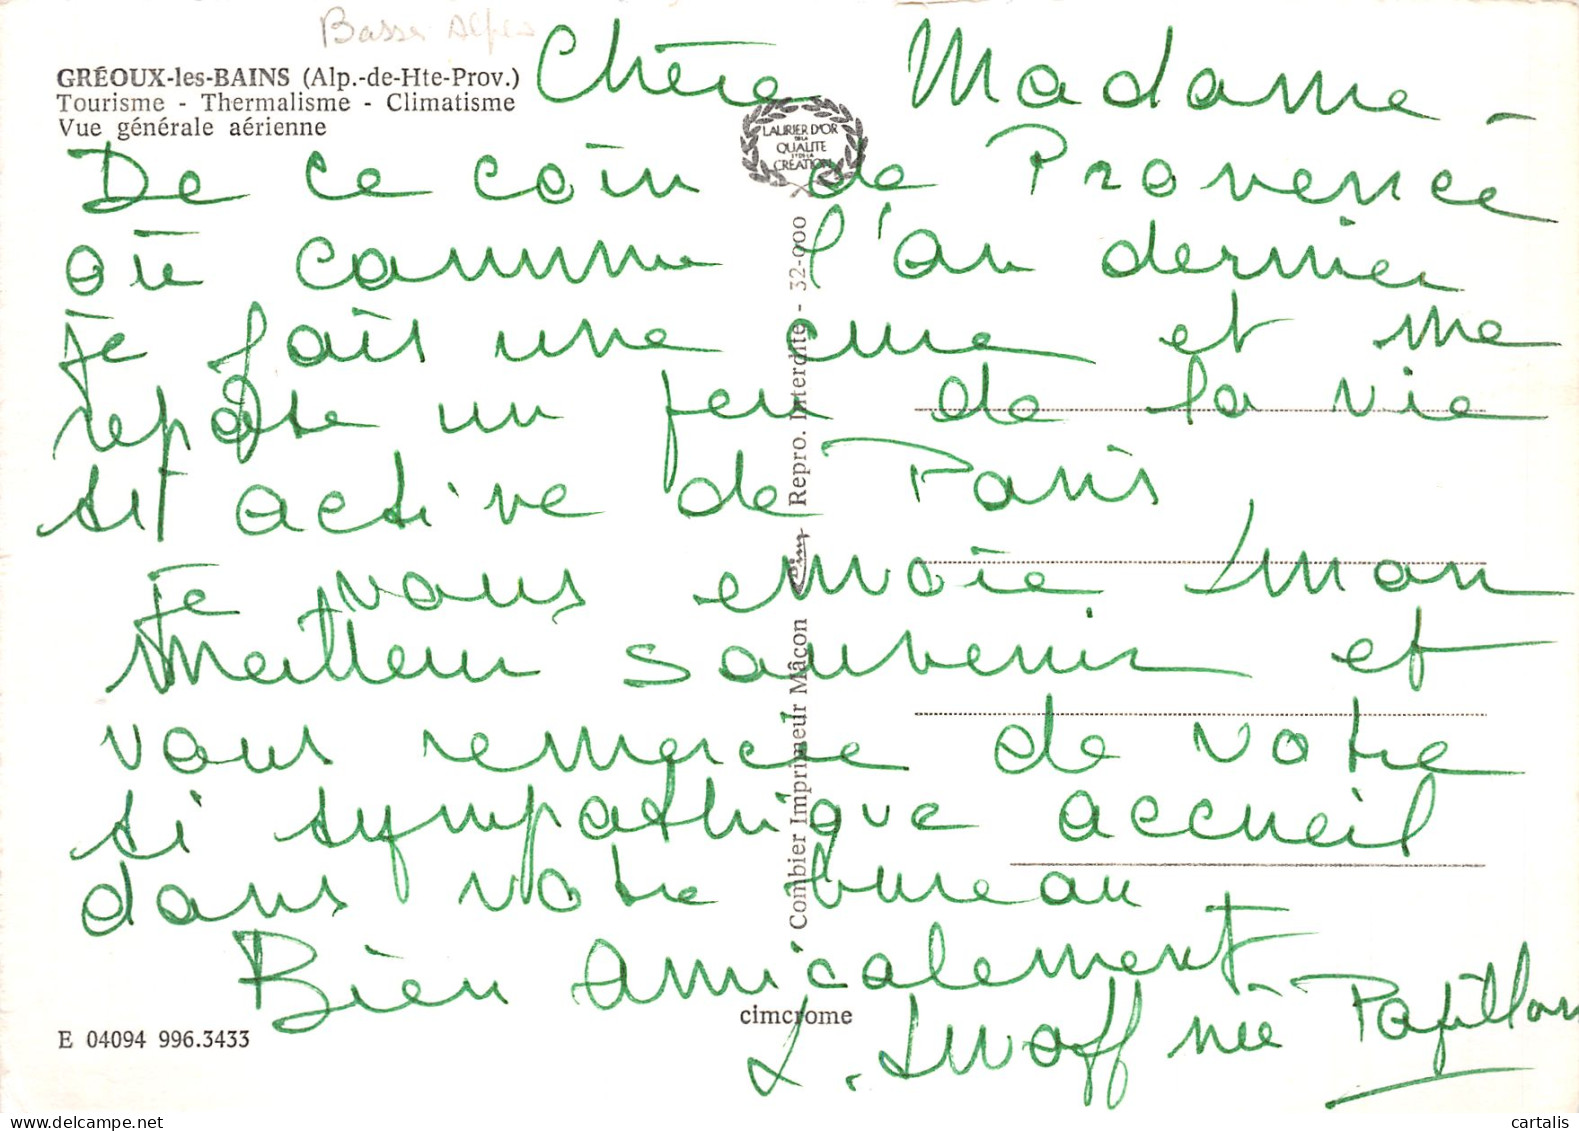 Basses Alpes
GRÉOUX-les-BAINS (Alp.-de-Hte-Prov.)
Tourisme - Thermalisme - Climatisme
Vue générale aérienne
Chère Madame -
LAURIER D'OR
DE LA
QUALITE
ET DE LA
CREATION
De ce coin de Provence
où comme l'an dernier
je fais une cure et me
repose un peu de la vie
si active de Paris
je vous envoie mon
meilleur souvenir et
vous remercie de votre
si sympathique accueil
dans votre bureau
Bien amicalement
née Papillon
Combier Imprimeur Mâcon Cim Repro. Interdite - 32-000
cimcrome
E 04094 996.3433
cartalis